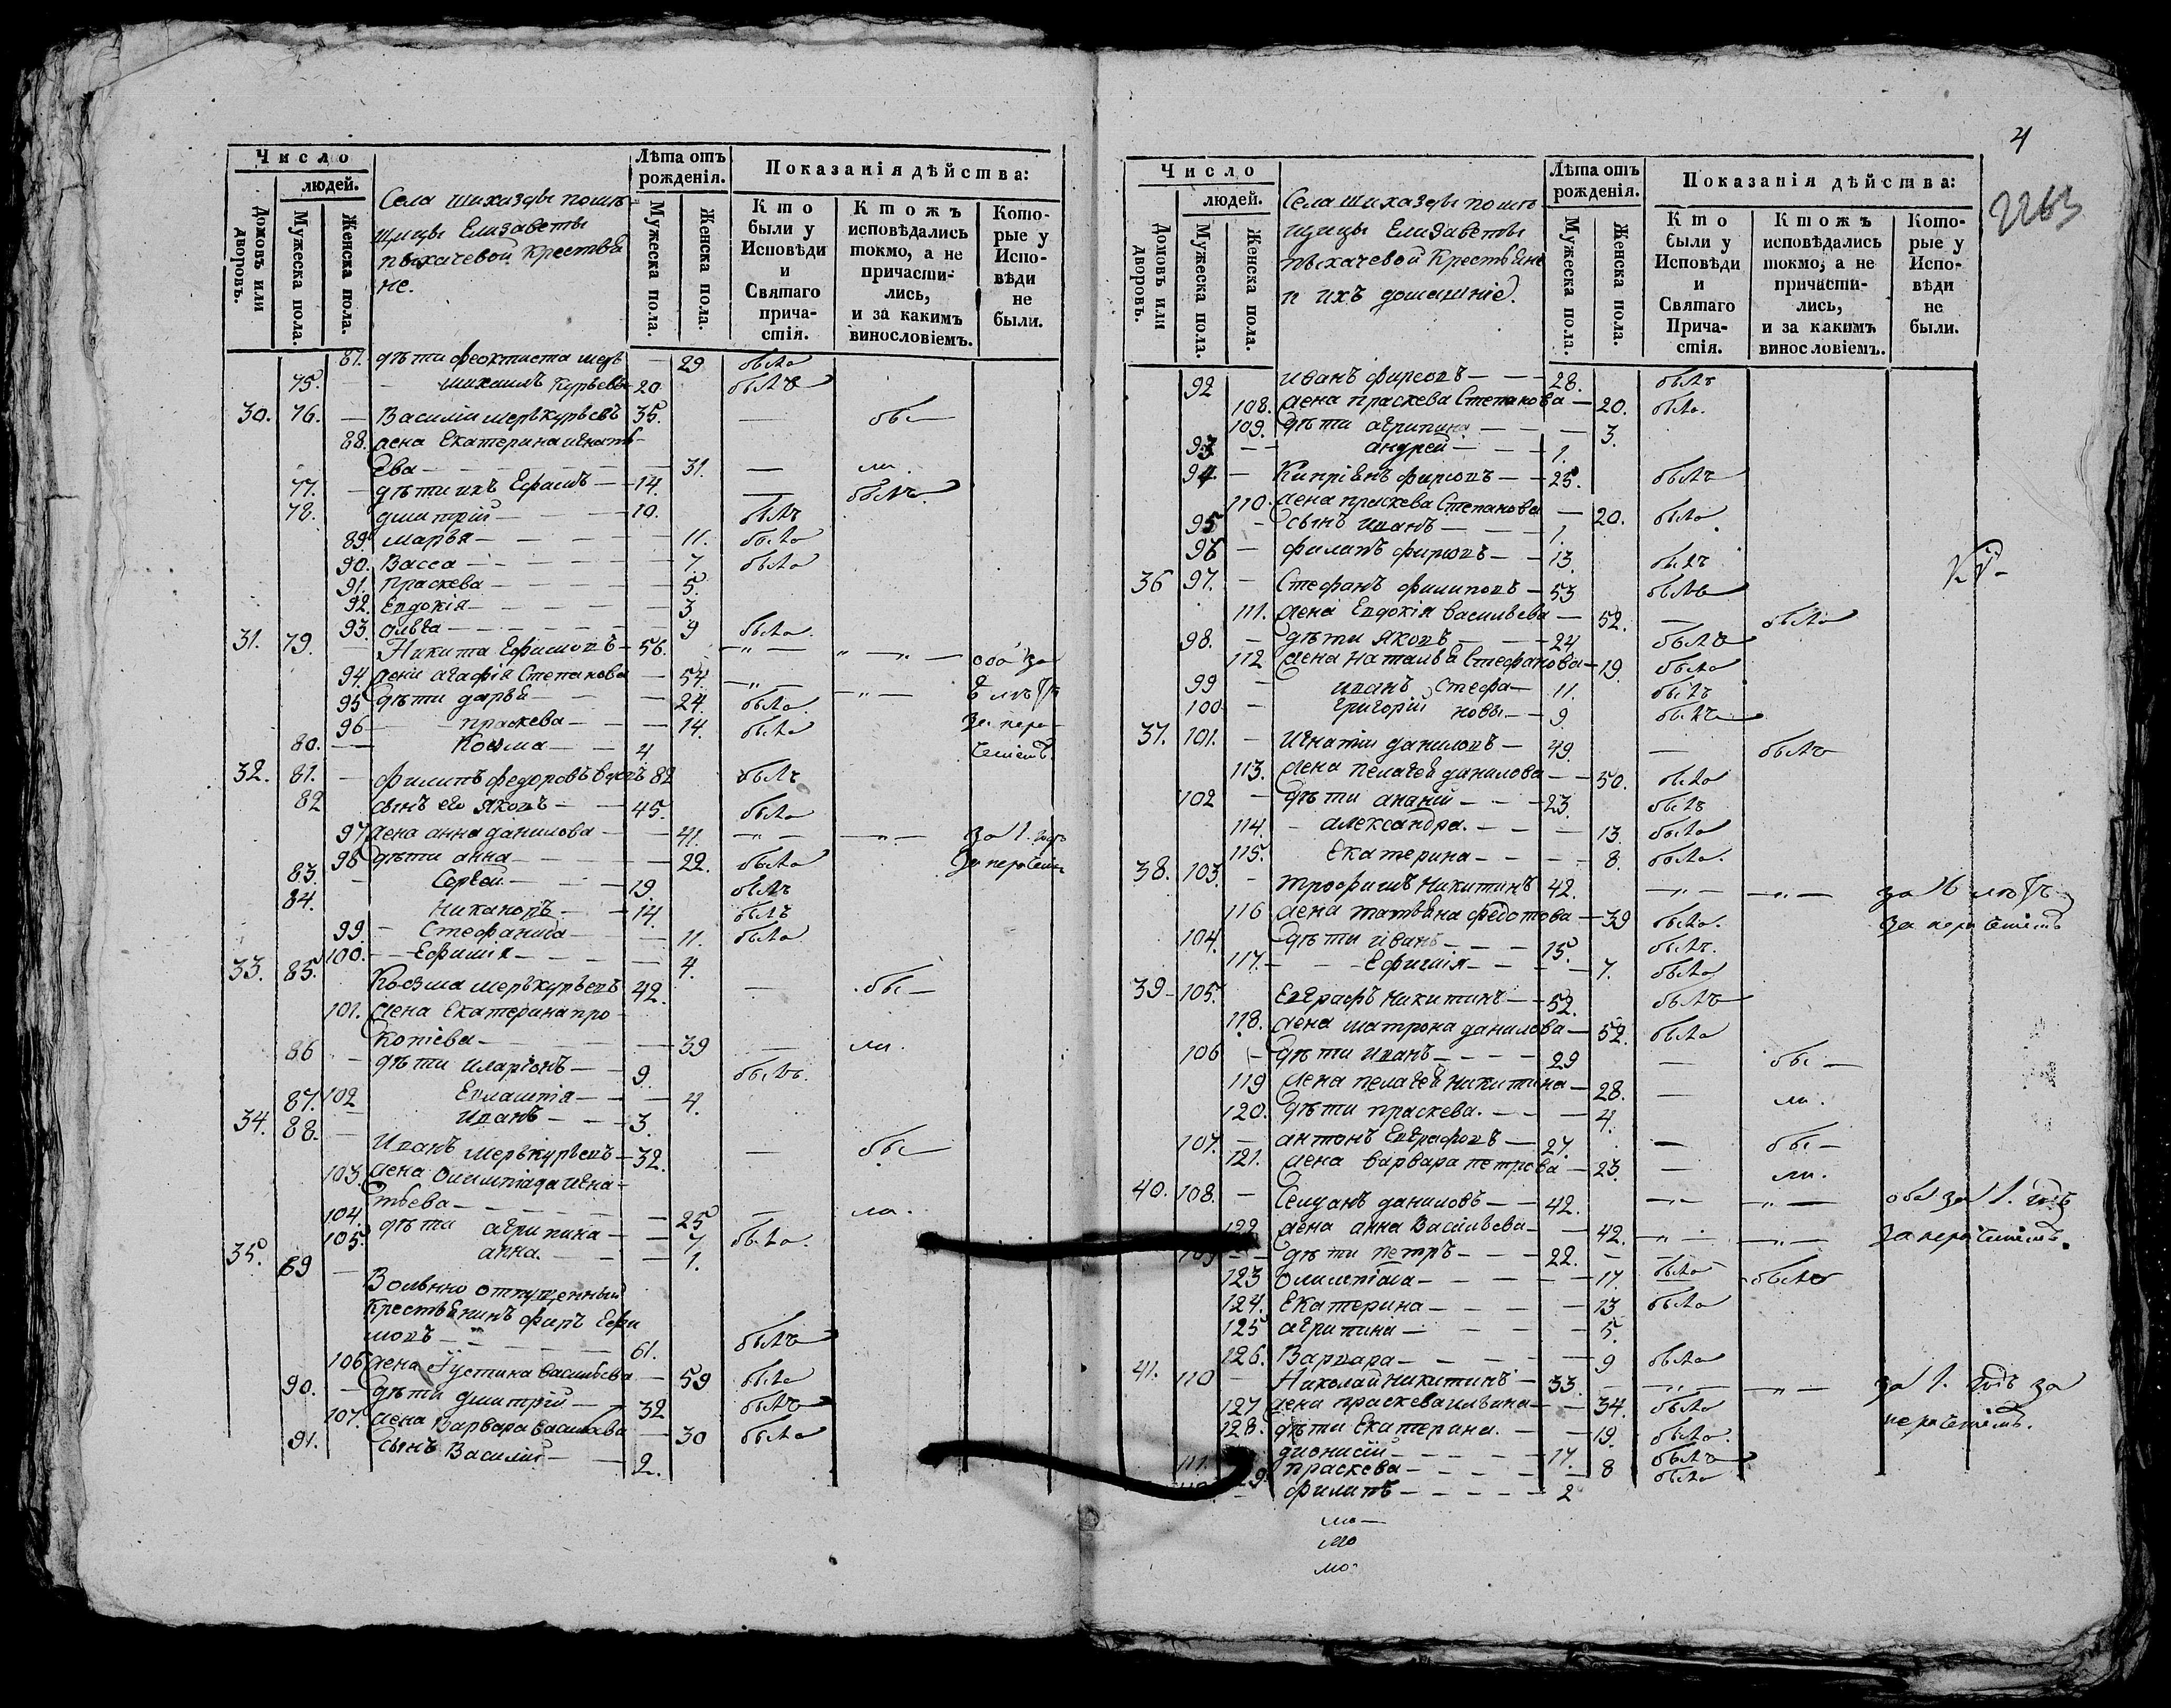 Число
людей.
Домовъ или дворовъ.
Мужеска пола.
Женска пола.
Села шихазды помѣ-
щицы Елизаветы
пыхачевой крестья
не.
Лѣта отъ рожденія.
Мужеска пола.
Женска пола.
Показанія дѣйства:
Кто были у Исповѣди и Святаго причастія.
Ктожъ исповѣдались токмо, а не причастились, и за какимъ винословіемъ.
Которые у Исповѣди не были.
87. дѣти феоктиста — 29 была
75. михаилъ 20 былъ
30. 76. — Василій меркурьевъ 35. — обы—
88. жена Екатерина игнать-
ева — 31. — ли.
77. — дѣти ихъ Ефимъ — 14. — былъ
78. дмитрій — 10. былъ
89. марья — 11. была
90. Васса — 7. была
91. праскева — 5.
92. Евдокія — 3
93. ольга — 9 была
31. 79. — Никита Ефимовъ — 56. —"— "—"— оба за
94. жена агафія Степанова — 54. —"— —"— 6 лѣтъ
95 дѣти дарья — 24. была за нера-
96 — праскева — 14. была ченіемъ.
80. — Козма — 4.
32. 81. — филипъ федоровъ вдовъ 82 былъ
82 сынъ его яковъ — 45. была
97 жена анна данилова — 41. —"— —"— за 1. годъ
98 дѣти анна — 22. была за нераченіем
83. — Сергей — 19. былъ
84. Никаноръ — 14. былъ
99. — Стефанида — 11. была
100. — Ефимія — 4.
33. 85. Козма меркурьевъ 42. — обы—
101. жена Екатерина про-
копіева — 39 — ли.
86 — дѣти иларіонъ — 9. былъ.
102 Евлампія — 4.
87. Иванъ — 3.
34. 88. — Иванъ меркурьевъ — 32. — обы
103. жена Олимпіада игна-
тьева — 25 — ли.
104. дѣти агрипина — 7 была.
105. анна. — 1.
35. 89 — Вольно отпущенный
крестьянинъ фирсъ Ефи
мовъ — 61. былъ
106 жена Іустина васильева — 59 была
90. — дѣти дмитрій — 32 былъ
107. жена Варвара васильева — 30 была
91. сынъ Василій — 2.
4
2263
Число
людей.
Домовъ или дворовъ.
Мужеска пола.
Женска пола.
Села шихазды помѣ-
щицы Елизаветы
пыхачевой крестьяне
и ихъ домашніе.
Лѣта отъ рожденія.
Мужеска пола.
Женска пола.
Показанія дѣйства:
Кто были у Исповѣди и Святаго Причастія.
Ктожъ исповѣдались токмо, а не причастились, и за какимъ винословіемъ.
Которые у Исповѣди не были.
92 иванъ фирсовъ — 28. былъ
108. жена праскева Степанова — 20. была.
109. дѣти агрипина — 3.
93 — андрей — 1.
94 — Кипріянъ фирсовъ — 25. былъ
110. жена праскева Степанова — 20. была
95 — сынъ иванъ — 1.
96 — филипъ фирсовъ — 13. былъ
36 97. — Стефанъ филиповъ — 53 былъ
111. жена Евдокія васильева — 52. — была
98. — дѣти яковъ — 24 былъ
112 жена наталья Стефанова — 19. была
99 — иванъ Стефа— 11. былъ
100 — григорій новы — 9 былъ
37. 101. — игнатій даниловъ — 49. — былъ
113. жена пелагея данилова — 50. была
102 — дѣти ананій — 23. былъ
114. — александра. — 13. была
115. Екатерина — 8. была.
38. 103. — трофимъ никитинъ 42. —"— —"— за 16 лѣтъ
116 жена татьяна федотова — 39 была. за нераченіемъ
104. дѣти иванъ — 15. былъ.
117. — Ефимія — 7. была
39 — 105. Евграфъ никитинъ — 52. былъ
118. жена матрона данилова — 52. была
106 — дѣти иванъ — 29 — обы—
119 жена пелагея никитина — 28. — ли.
120. дѣти праскева. — 4.
107. — антонъ Евграфовъ — 27. — обы—
121. жена варвара петрова — 23. — ли.
40. 108. — Селуанъ даниловъ — 42. —"— "— оба за 1. годъ
122 жена анна Васильева — 42. —"— —"— за нераченіемъ.
109 — дѣти петръ — 22. — былъ
123 Олимпіада — 17. была
124. Екатерина — 13 была
125 агрипина — 5.
126. Варвара — 9 была
41. 110 — Николай никитинъ — 33. —"— —"— за 1. годъ за
127 жена праскева ильина — 34. была нераченіемъ.
128. дѣти Екатерина. — 19. была.
111. дионисій — 17. былъ
129 праскева — 8 была
филипъ — 2
мо—
мо
мо.